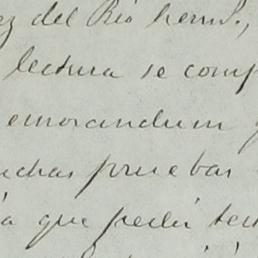 ez del Río hernd.,
lectura se comp
emorandum
uchas pruebas
ía que pedir tes